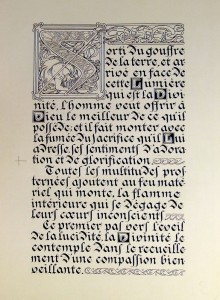 Sorti du gouffre
de la terre, et ar
rivé en face de
cette Lumière
qui est la Divi
nité, l'homme veut offrir à
Dieu le meilleur de ce qu'il
possède: et il fait monter avec
la fumée du sacrifice qu'il Lui
adresse, ses sentiments d'adora
tion et de glorification
Toutes les multitudes pros
ternées ajoutent au feu maté
riel qui monte, la flamme
intérieure qui se dégage de
leurs cœurs inconscients
Ce premier pas vers l'éveil
de la lucidité, la Divinité le
contemple dans le recueille
ment d'une compassion bien
veillante.